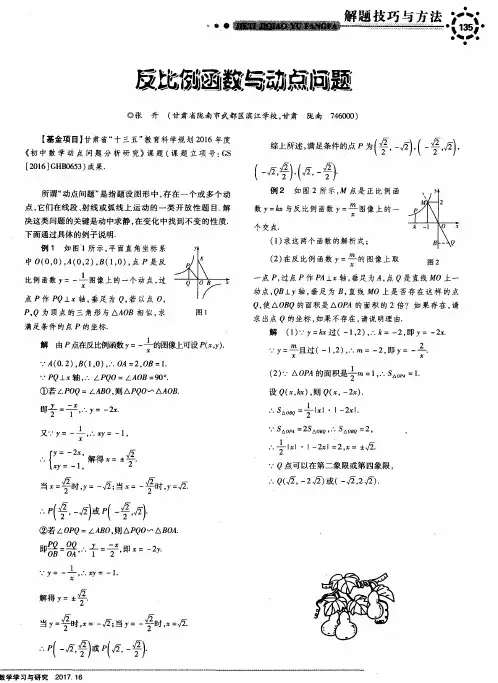 解题技巧与方法
JIETI JIQIAO YU FANGFA
135
反比例函数与动点问题
◎张 丹 (甘肃省陇南市武都区滨江学校,甘肃 陇南 746000)
【基金项目】甘肃省“十三五”教育科学规划2016年度
《初中数学动点问题分析研究》课题(课题立项号:GS
[2016]GHB0653)成果.
所谓“动点问题”是指题设图形中,存在一个或多个动
点,它们在线段、射线或弧线上运动的一类开放性题目.解
决这类问题的关键是动中求静,在变化中找到不变的性质.
下面通过具体的例子说明.
例1 如图1所示,平面直角坐标系
中O(0,0),A(0,2),B(1,0),点P是反
比例函数y=-1/x图像上的一个动点,过
点P作PQ⊥x轴,垂足为Q,若以点O,
P,Q为顶点的三角形与△AOB相似,求
满足条件的点P的坐标.
图1
解 由P点在反比例函数y=-1/x的图像上可设P(x,y).
∵A(0,2),B(1,0),∴OA=2,OB=1.
∵PQ⊥x轴,∴∠PQO=∠AOB=90°.
①若∠POQ=∠ABO,则△PQO∽△AOB.
即y/2=-x/1,∴y=-2x.
又∵y=-1/x,∴xy=-1,
∴{y=-2x, xy=-1, 解得x=±√2/2.
当x=√2/2时,y=-√2;当x=-√2/2时,y=√2.
∴P(√2/2,-√2)或P(-√2/2,√2).
②若∠OPQ=∠ABO,则△PQO∽△BOA.
即PQ/OB=OQ/OA,∴y/1=-x/2,即x=-2y.
∵y=-1/x,∴xy=-1.
解得y=±√2/2.
当y=√2/2时,x=-√2;当y=-√2/2时,x=√2.
∴P(-√2,√2/2)或P(√2,-√2/2).
综上所述,满足条件的点P为(√2/2,-√2),(-√2/2,√2),
(-√2,√2/2),(√2,-√2/2).
例2 如图2所示,M点是正比例函
数y=kx与反比例函数y=m/x图像上的一
个交点.
(1)求这两个函数的解析式;
(2)在反比例函数y=m/x的图像上取
图2
一点P,过点P作PA⊥x轴,垂足为A,点Q是直线MO上一
动点,QB⊥y轴,垂足为B,直线MO上是否存在这样的点
Q,使△OBQ的面积是△OPA的面积的2倍?如果存在,请
求出点Q的坐标,如果不存在,请说明理由.
解 (1)∵y=kx过(-1,2),∴k=-2,即y=-2x.
∵y=m/x且过(-1,2),∴m=-2,即y=-2/x.
(2)∵△OPA的面积是1/2m=1,∴S△OPA=1.
设Q(x,kx),则Q(x,-2x).
∴S△OBQ=1/2|x|·|-2x|.
∵S△OPA=2S△OBQ,∴S△OBQ=2,
∴1/2|x|·|-2x|=2,x=±√2.
∵Q点可以在第二象限或第四象限,
∴Q(√2,-2√2)或(-√2,2√2).
数学学习与研究 2017.16